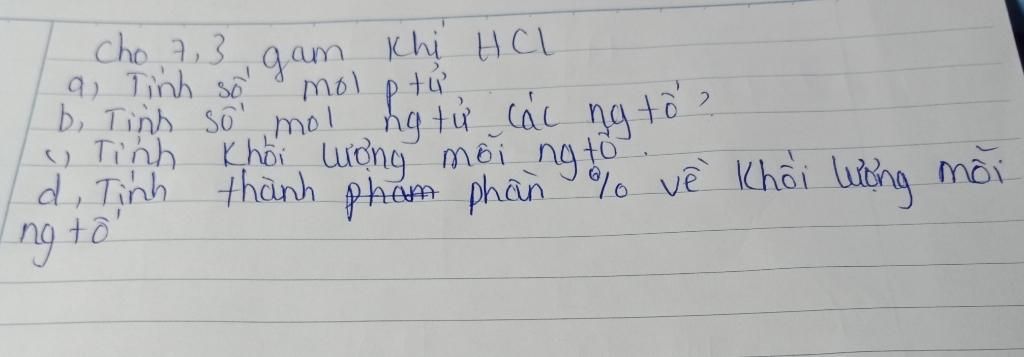 Cho 7,3 gam khí HCl
a, Tính số mol ptử
b, Tính số mol ngtử các ngtố?
c, Tính khối lượng mỗi ngtố.
d, Tính thành phần % về khối lượng mỗi
ngtố